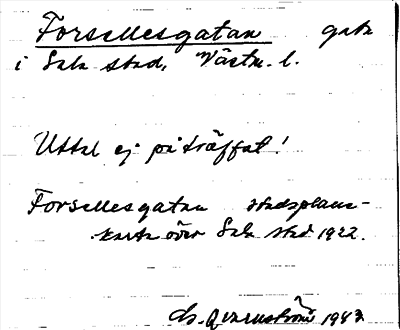 Forsellesgatan gata
i Sala stad, Västm. l.
Uttal ej påträffat!
Forsellesgatan stadsplane-
karta över Sala stad 1922.
Qvarnström